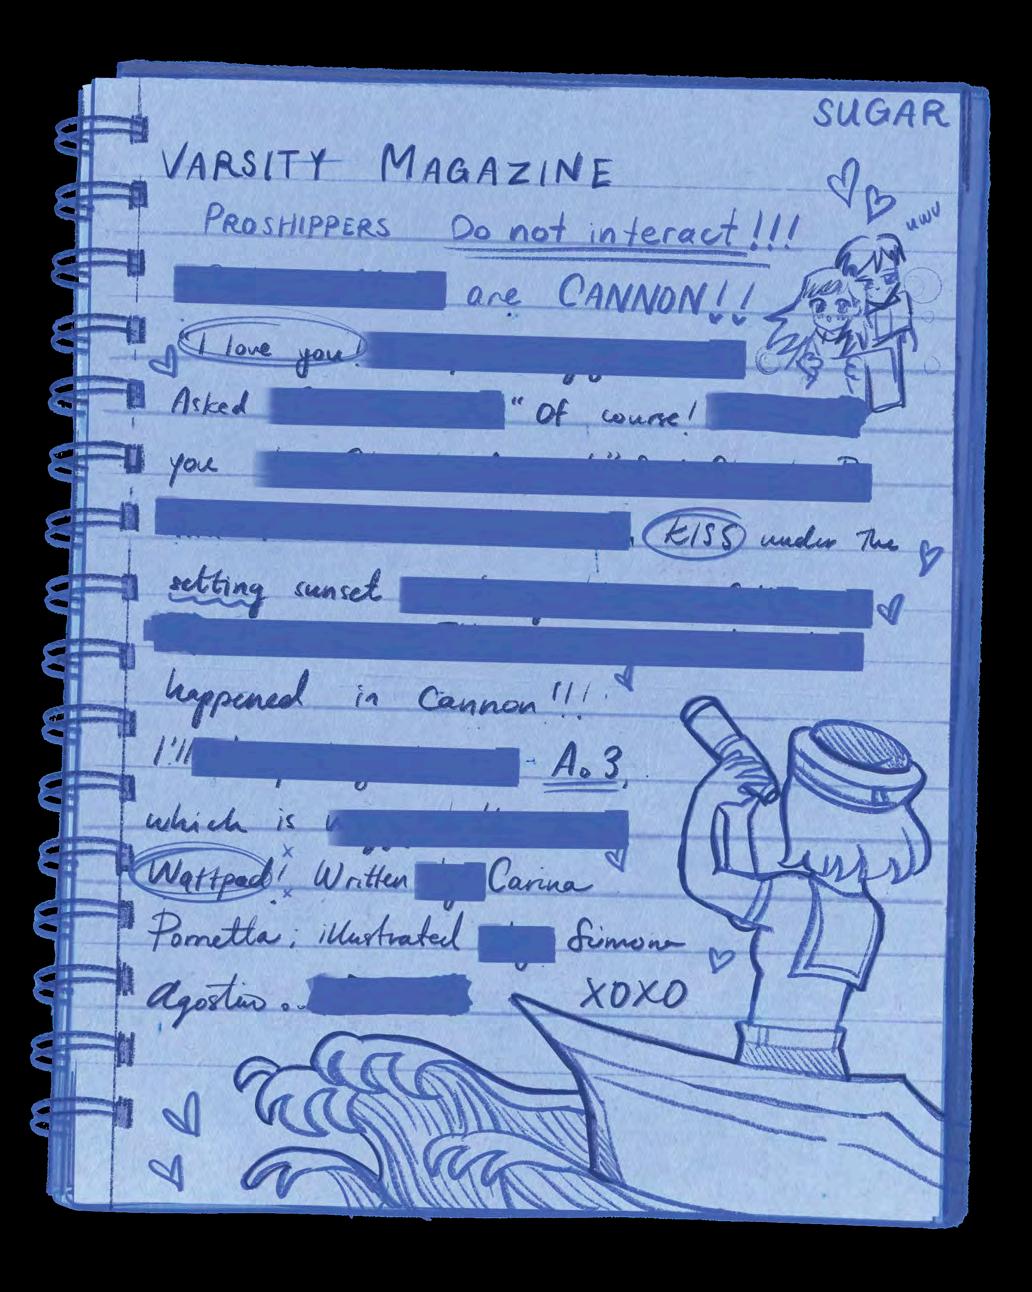 SUGAR
VARSITY MAGAZINE
PROSHIPPERS Do not interact!!!
uwu
are CANNON!!
"I love you!
Asked " Of course!
you
KISS under The
setting sunset
happened in Cannon!!!
I'll A.3.
which is
Wattpad! Written Carina
Pometta; illustrated Simone
Agostino..
XOXO